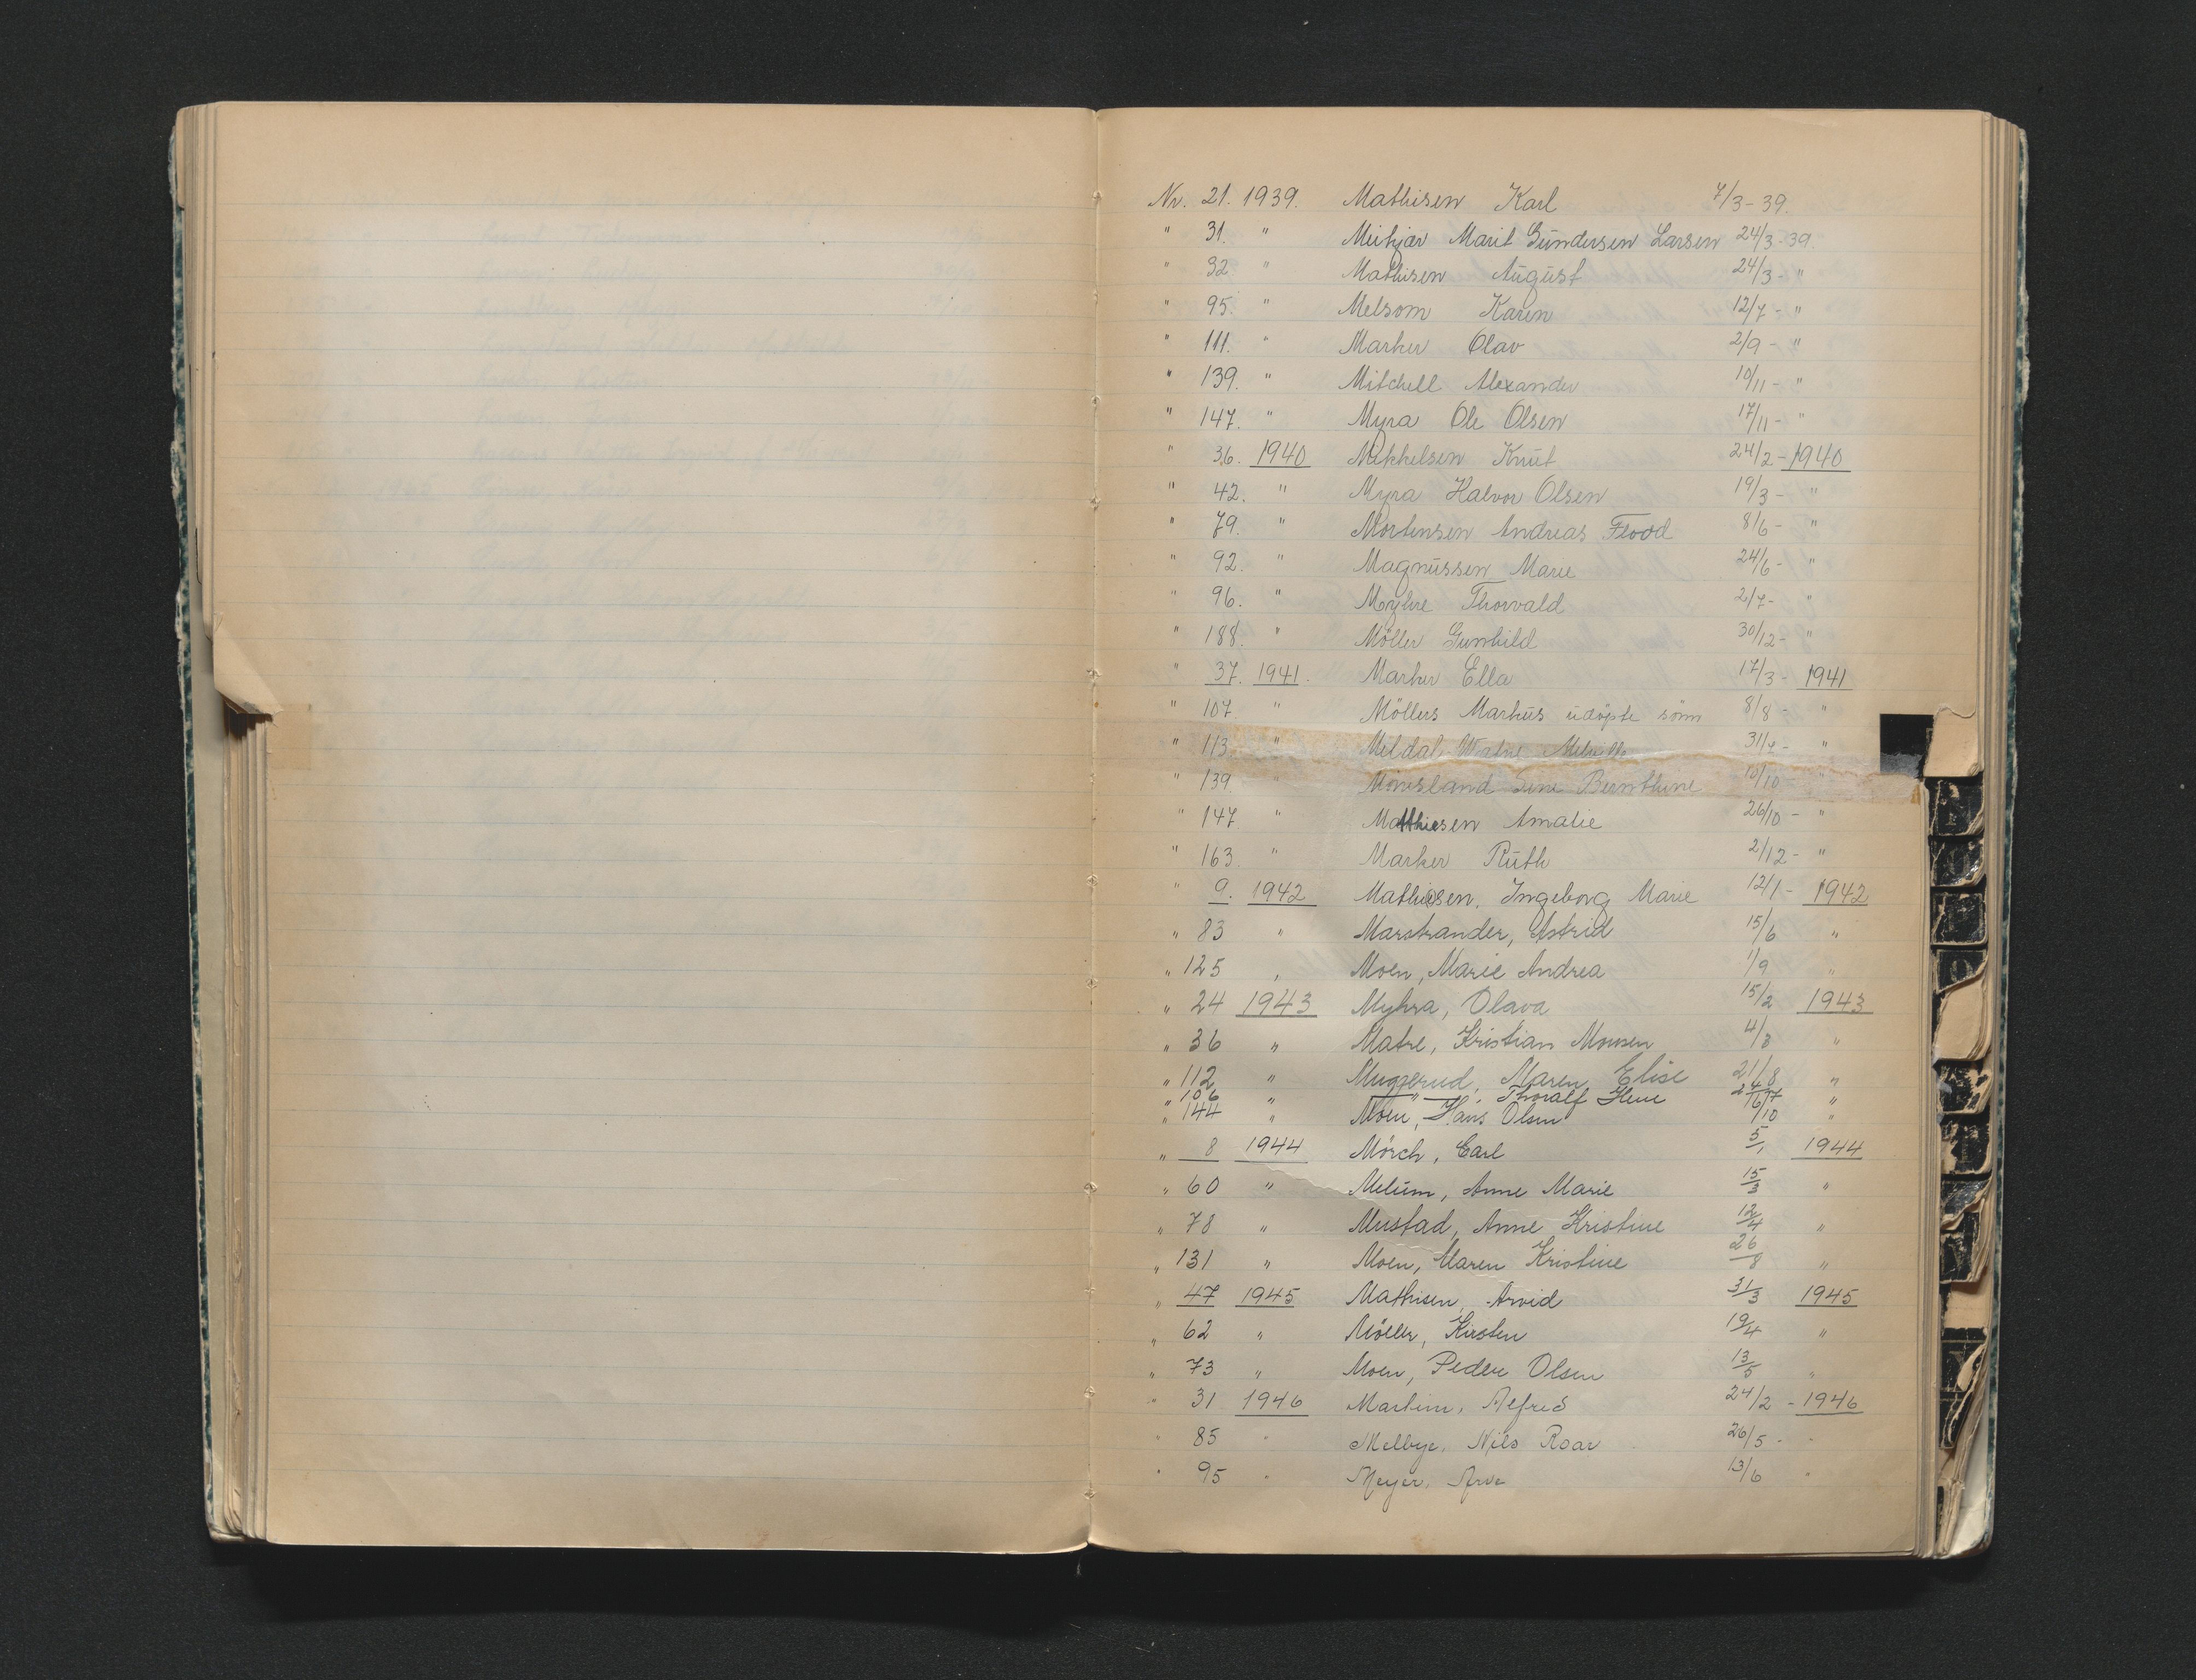 Nr. 21. 1939. Mathisen Karl 7/3-39.
" 31. " Meitjær Marit Gundersen Larsen 24/3-39.
" 32. " Mathisen August 24/3- "
" 95. " Melsom Karen 12/7- "
" 111. " Marker Olav 2/9- "
" 139. " Mitchell Alexander 10/11- "
" 147. " Myra Ole Olsen 17/11- "
" 36. 1940 Mikkelsen Knut 24/2-1940
" 42. " Myra Halvor Olsen 19/3- "
" 79. " Mortensen Andreas Flood 8/6- "
" 92. " Magnussen Marie 24/6- "
" 96. " Myhre Thorvald 2/7- "
" 188. " Möller Gunhild 30/12- "
" 37. 1941. Marker Ella 17/3- 1941
" 107. " Möllers Markus udöpte sönn 8/8- "
" 113. " Meldal 31/7- "
" 139. " Bernthine 10/10- "
" 147 " Mathiesen Amalie 26/10- "
" 163. " Marker Ruth 2/12- "
" 9. 1942 Mathiesen, Ingeborg Marie 12/1- 1942
" 83 " Marstrander, Astrid 15/6 "
" 125 " Moen, Marie Andrea 1/9 "
" 24 1943 Myhra, Olava 15/2 1943
" 36 " Matre, Kristian Monsen 4/3 "
" 112 " Muggerud, Maren Elise 21/8 "
" 106 " — " — , Thoralf 24/7 "
" 144 " Moen, Hans Olsen 16/10 "
" 8 1944 Mörch, Carl 5/1 1944
" 60 " Melum, Anne Marie 15/3 "
" 78 " Mustad, Anne Kristine 12/4 "
" 131 " Moen, Maren Kristine 26/8 "
" 47 1945 Mathisen, Arvid 31/3 1945
" 62 " Möller, Kirsten 19/4 "
" 73 " Moen, Peder Olsen 13/5 "
" 31 1946 Martini, Alfred 24/2 - 1946
" 85 " Melbye, Nils Roar 26/5 - "
" 95 " Meyer, Arve 13/6 "